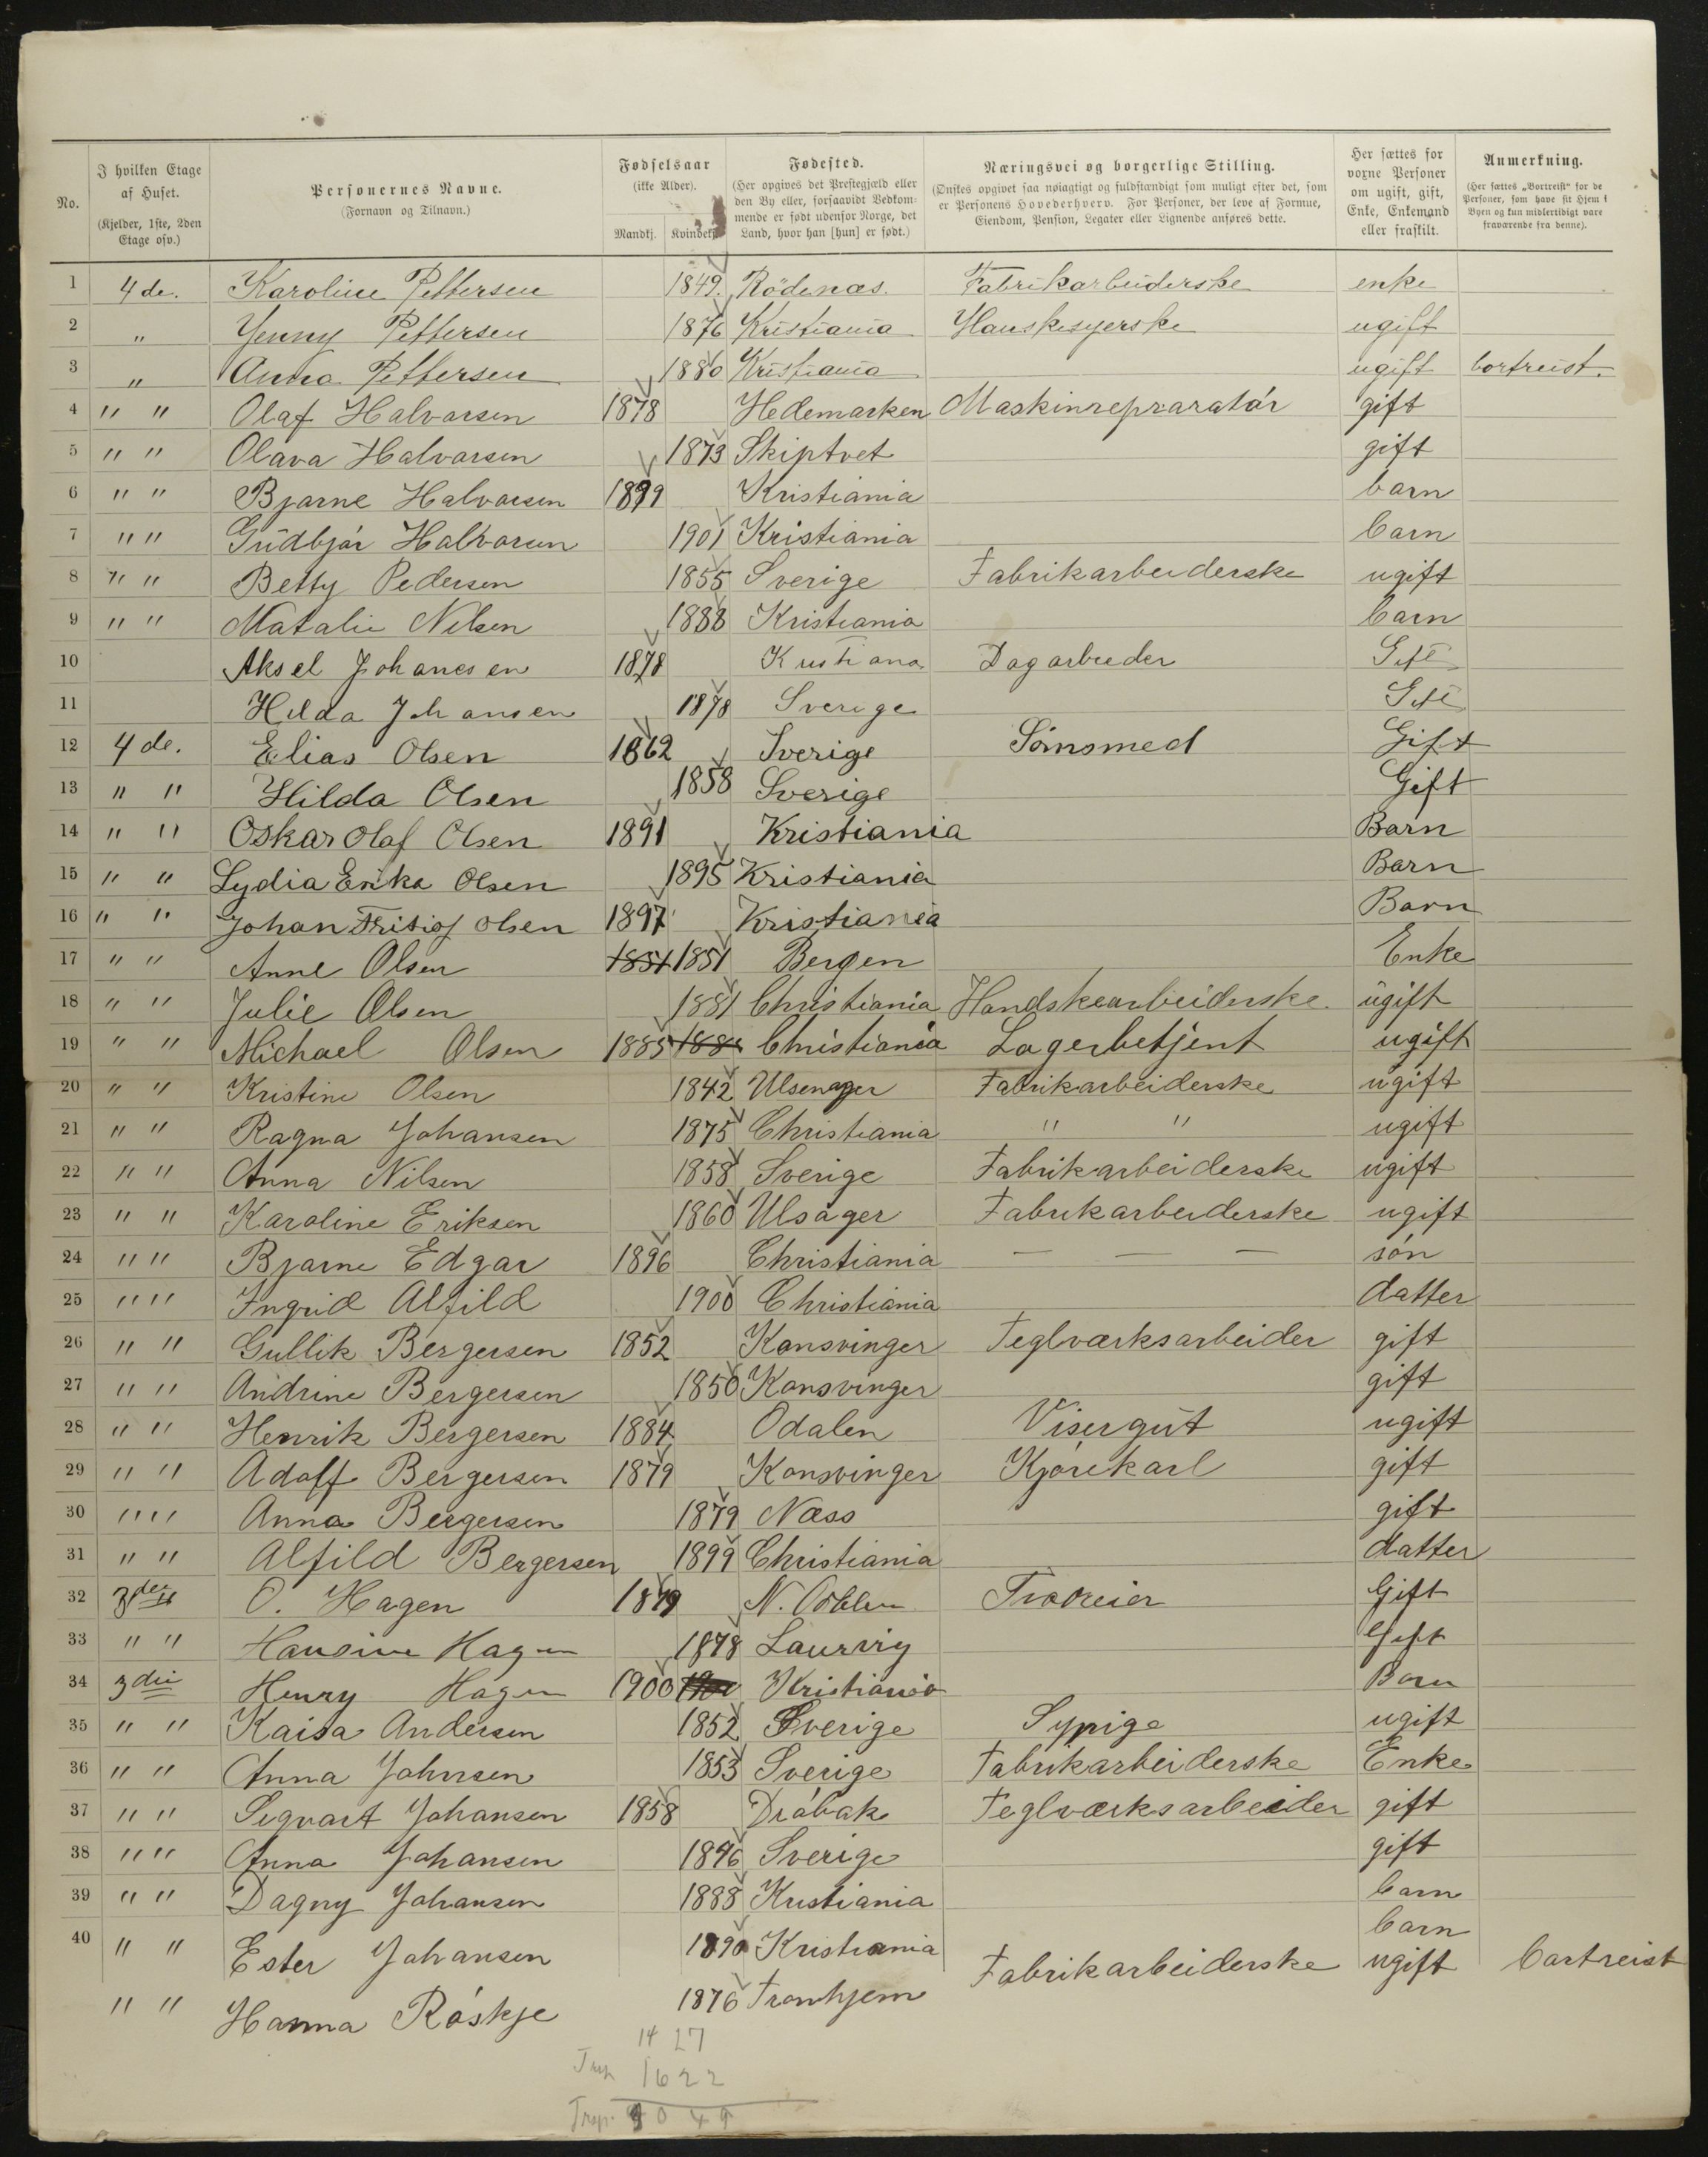 No.
I hvilken Etage af Huset. (Kjelder, 1ste, 2den Etage osv.)
Personernes Navne. (Fornavn og Tilnavn.)
Fødselsaar (ikke Alder). Mandkj. Kvindekj.
Fødested. (Her opgives det Prestegjæld eller den By eller, forsaavidt Vedkommende er født udenfor Norge, det Land, hvor han [hun] er født.)
Næringsvei og borgerlige Stilling. (Ønskes opgivet saa nøiagtigt og fuldstændigt som muligt efter det, som er Personens Hovederhverv. For Personer, der leve af Formue, Eiendom, Pension, Legater eller Lignende anføres dette.
Her sættes for voxne Personer om ugift, gift, Enke, Enkemand eller fraskilt.
Anmerkning. (Her sættes „Bortreist" for de Personer, som have sit Hjem i Byen og kun midlertidigt vare fraværende fra denne).
1 4 de. Karoline Pettersen 1849. Rödenæs. Fabrikarbeiderske enke
2 " Jenny Pettersen 1876 Kristiania Hanskesyerske ugift
3 " Anna Pettersen 1880 Kristiania ugift bortreist.
4 " " Olaf Halvarsen 1878 Hedemarken Maskinrepraratór gift
5 " " Olava Halvarsen 1873 Skiptvet gift
6 " " Bjarne Halvarsen 1899 Kristiania barn
7 " " Gudbjór Halvarsen 1901 Kristiania barn
8 " " Betty Pedersen 1855 Sverige Fabrikarbeiderske ugift
9 " " Natalie Nilsen 1888 Kristiania barn
10 Aksel Johanesen 1878 Kristiana Dagarbeder Gift
11 Hilda Johansen 1878 Sverige Gift
12 4 de. Elias Olsen 1862 Sverige Sömsmed Gift
13 " " Hilda Olsen 1858 Sverige Gift
14 " " Oskar Olaf Olsen 1891 Kristiania Barn
15 " " Lydia Erika Olsen 1895 Kristiania Barn
16 " " Johan Fritiof Olsen 1897 Kristiania Barn
17 " " Anne Olsen 1851 1851 Bergen Enke
18 " " Julie Olsen 1881 Christiania Handskearbeiderske. ugift
19 " " Michael Olsen 1885 Christiania Lagerbetjent ugift
20 " " Kristine Olsen 1842 Fabrikarbeiderske ugift
21 " " Ragna Johansen 1875 Christiania " " ugift
22 " " Anna Nilsen 1858 Sverige Fabrikarbeiderske ugift
23 " " Karoline Eriksen 1860 Ulsager Fabrikarbeiderske ugift
24 " " Bjarne Edgar 1896 Christiania — — — són
25 " " Ingrid Alfild 1900 Christiania datter
26 " " Gullik Bergersen 1852 Konsvinger Teglværksarbeider gift
27 " " Andrine Bergersen 1850 Konsvinger gift
28 " " Henrik Bergersen 1884 Odalen Visergut ugift
29 " " Adolf Bergersen 1879 Konsvinger Kjórekarl gift
30 " " Anna Bergersen 1879 Næss gift
31 " " Alfild Bergersen 1899 Christiania datter
32 O. Hagen 1879 Gift
33 " " Hansine Hagen 1878 Laurvig Gift
34 3die Henry Hagen 1900 Kristiania Barn
35 " " Kaisa Andersen 1852 Sverige Sypige ugift
36 " " Anna Johnsen 1853 Sverige Fabrikarbeiderske Enke
37 " " Sigvart Johansen 1858 Dróbak Teglværksarbeider gift
38 " " Anna Johansen Sverige gift
39 " " Dagny Johansen 1888 Kristiania barn
40 " " Ester Johansen 1890 Kristiania barn
" " Hanna Róskje 1876 Tronhjem Fabrikarbeiderske ugift bortreist
14 27
16 22
30 49